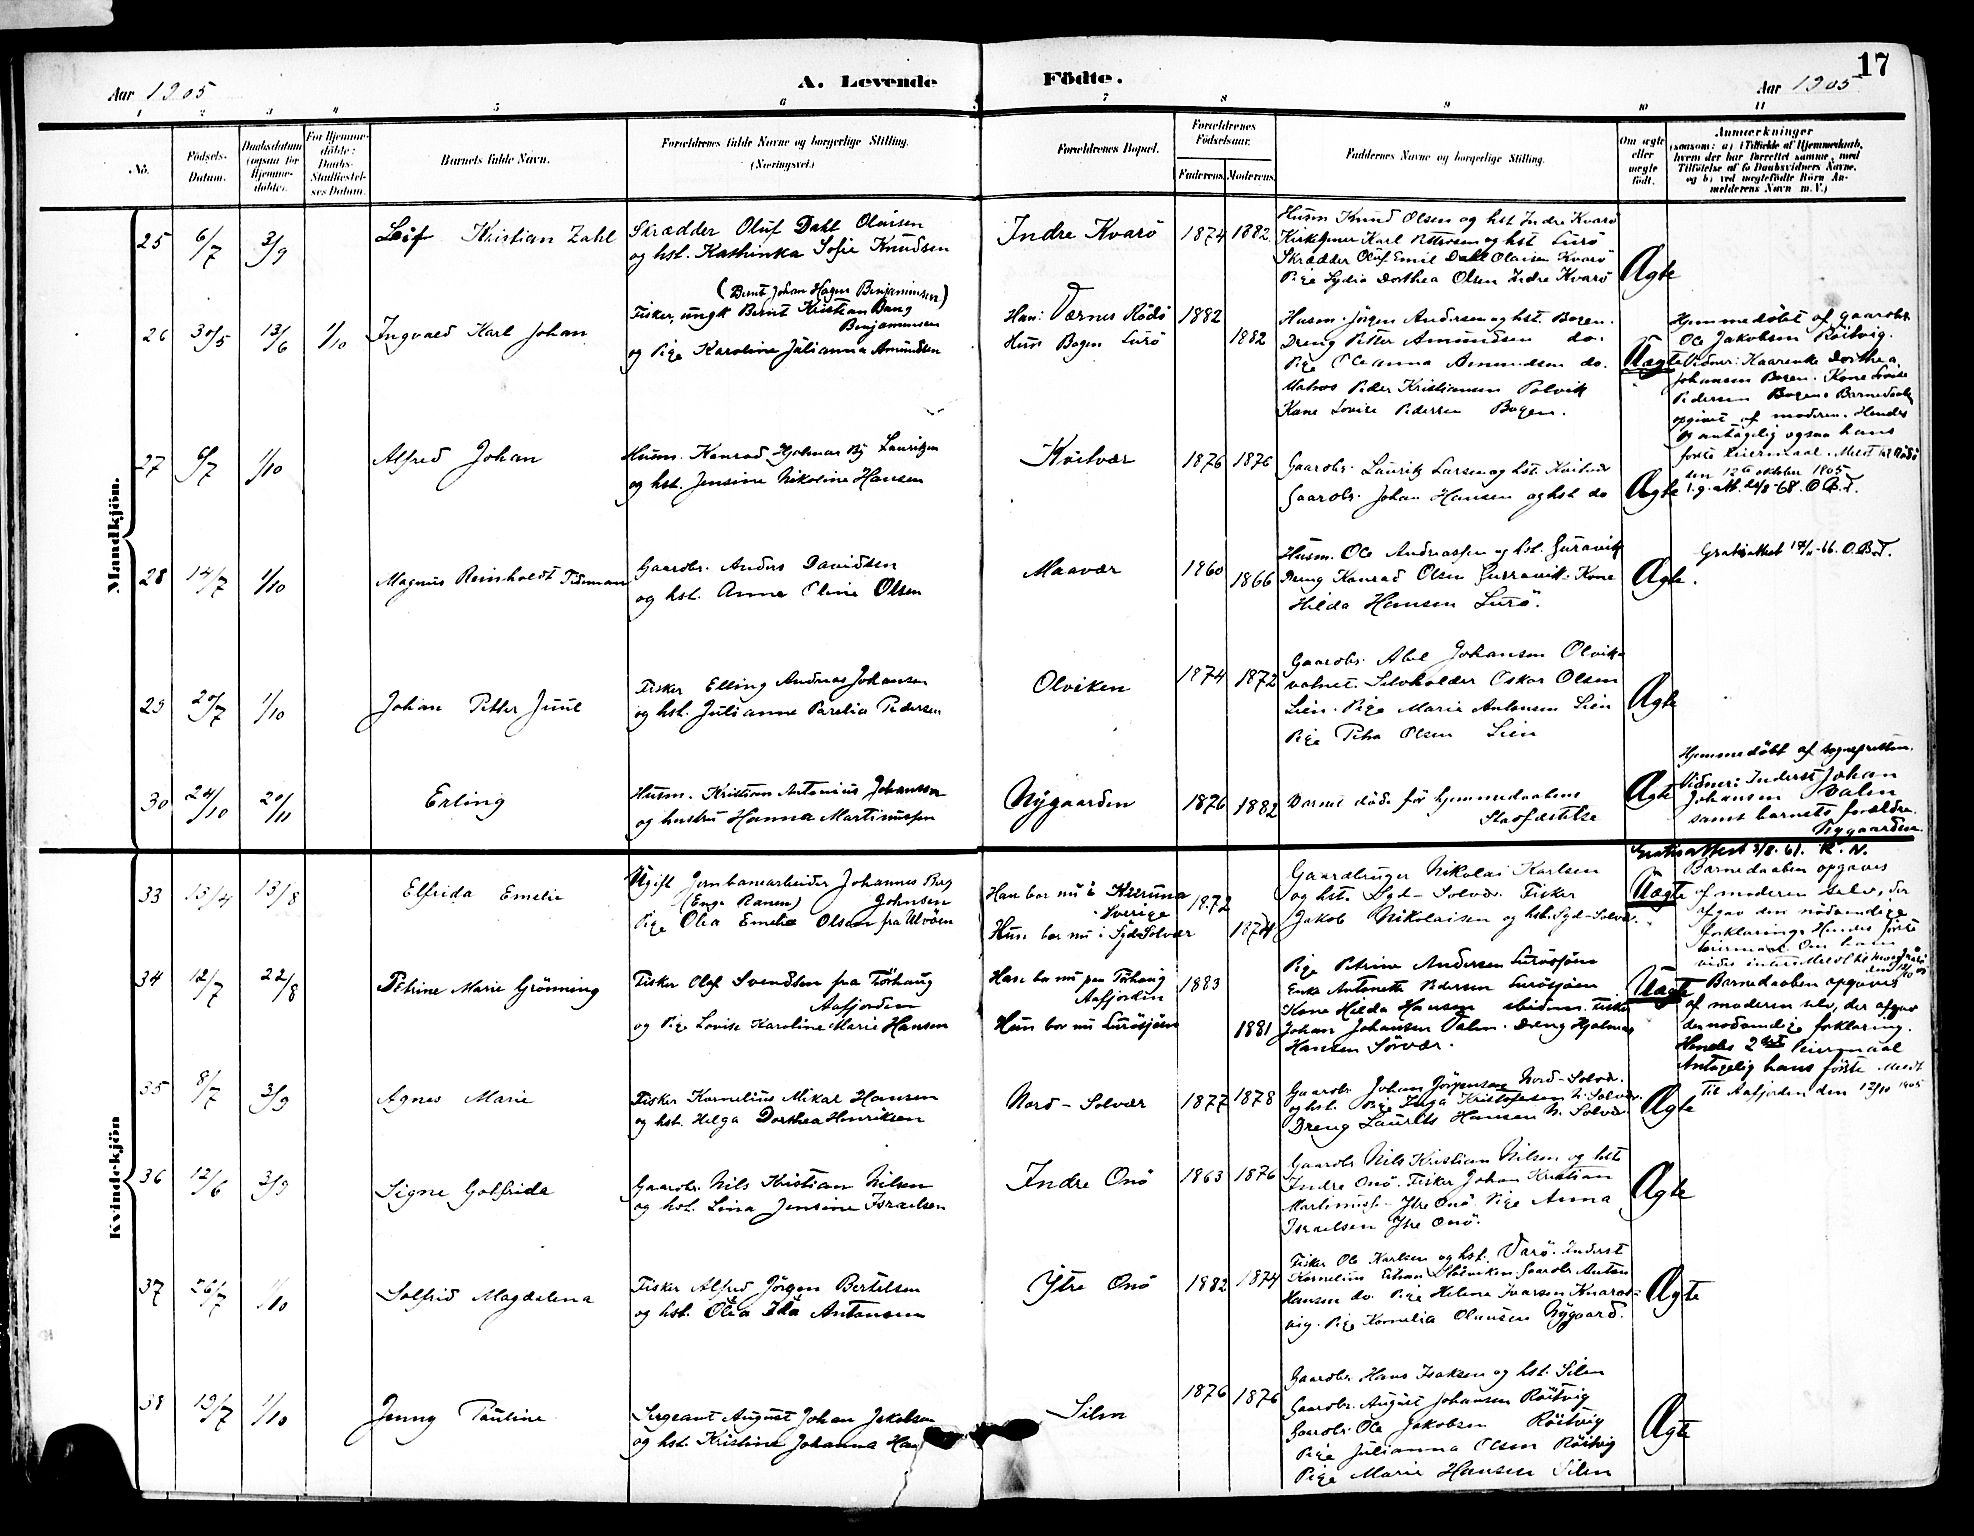 17
Aar 1905
A. Levende Födte.
Aar 1905
1 2 3 4 5 6 7 8 9 10 11
No.
Födsels-Datum.
Daabsdatum (ogsaa for Hjemmedöbte).
For Hjemmedöbte: Daabs-Stadfæstelses Datum.
Barnets fulde Navn.
Forældrenes fulde Navne og borgerlige Stilling. (Næringsvei.)
Forældrenes Bopæl.
Forældrenes Födselsaar.
Faderens. Moderens.
Faddernes Navne og borgerlige Stilling.
Om ægte eller uægte födt.
Anmærkninger
(saasom: a) i Tilfælde af Hjemmedaab, hvem der har forrettet samme, med Tilföielse af to Daabsvidners Navne, og b) ved uægtefödte Börn Anmelderens Navn m. V.)
Mandkjön.
25 6/7 3/9
Leif Kristian Zahl
Skrædder Oluf Dahl Olaisen
og hst. Kathinka Sofie Knudsen
Indre Kvarö
1874 1882
Husm Knud Olsen og hst Indre Kvarö
Karl Pettersen og hst Lurö
Skrædder Oluf Emil Dahl Olaisen Kvarö
Pige Lydia Dorthea Olsen Indre Kvarö
Ægte
26 30/5 13/6 1/10
Ingvald Karl Johan
(Bernt Johan Hagen Benjaminsen)
Fisker, ungk Bernt Kristian Bang
Benjaminsen
og Pige Karoline Julianna Amundsen
Han: Værnes Rödö
Hun Bogen Lurö
1882
1882
Husm. Jörgen Andersen og hst. Bogen.
Dreng Petter Amundsen do.
Pige Oleanna Amundsen do.
Matros Peder Kristiansen Polvik
Kone Lovise Pedersen Bogen.
Uægte
Hjemmedöbt af gaarobr
Ole Jakobsen Röitvig.
Vidner: Kaarenke Dorthea
Johansen Bogen. Kone Lovise
Pedersen Bogen. Barnedaab
opgivet af moderen. Hendes
og antagelig ogsaa hans
förste leiermaal. Meldt til Rödö
den 12te oktober 1905
27 6/7 1/10
Alfred Johan
Husm. Konrad Hjalmar By Lauritzen
og hst. Jensine Nikoline Hansen
Kvitvær
1876 1876
Gaarobr. Lauritz Larsen og hst. Kvitvær
Gaarobr. Johan Hansen og hst do
Ægte
28 14/7 1/10
Magnus Reinholdt Tidman
Gaarobr. Anders Davidsen
og hst. Anne Oline Olsen
Maavær
1860 1866
Husm. Ole Andreassen og hst. Guravik
Dreng Konrad Olsen Kone
Hilda Hansen Lurö.
Ægte
29 20/7 1/10
Johan Petter Juul
Fisker Elling Andreas Johansen
og hst. Julianne Parelia Pedersen
Olviken
1874 1872
Gaarobr. Abel Johansen Olvik
Selvholder Oskar Olsen
Lien. Pige Marie Antonsen Lien
Pige Petra Olsen Lien
Ægte
30 24/10 20/11
Erling
Husm. Kristian Antonius Johansen
og hustru Hanna Martinussen
Nygaarden
1876 1882
Barnet döde för hjemmedaabens
Stadfæstelse
Ægte
Hjemmedöbt af sognepresten.
Vidner: Inderst Johan
Johansen Dalen
samt barnets forældre
Nygaarden.
Kvindekjön
33 13/4 13/8
Elfrida Emelie
Ugift Jernbanearbeider Johannes Berg
Johnsen
Pige Olea Emelie Olsen
Han bor nu i Kiruna
Sverige
Hun bor nu i Syd-Solvær
1872
1874
Gaardbruger Nikolai Karlsen
og hst. Syd-Solvær. Fisker
Jakob Nikolaisen og hst. Syd-Solvær.
Uægte
Barnedaaben opgaves
af moderen selv, der
afgav den nödvendige
forklaring. Hendes förste
leiermaal. Om ham
34 12/7 22/8
Petrine Marie Grönning
Fisker Olaf Svendsen fra Törhaug
Aafjorden
og Pige Lovise Karoline Marie Hansen
Han bor nu paa Törhaug
Aafjorden
Hun bor nu Lurösjöen
1883
1881
Pige Petrine Andersen Lurösjöen
Enke Antonette Pedersen Lurösjöen
Kone Hilda Hansen Fisker
Johan Johansen Dalen. Dreng Hjalmar
Hansen Sörvær.
Uægte
Barnedaaben opgaves
af moderen selv, der afgav
den nödvendige forklaring.
Hendes 2det Leiermaal
Antagelig hans förste. Meldt
til Aafjorden den 12/10 1905
35 8/7 3/9
Agnes Marie
Fisker Kornelius Mikal Hansen
og hst. Helga Dorthea Henriksen
Nord-Solvær
1877 1878
Gaarobr. Johan Jörgensen Nord-Solvær
og hst. Pige Inga Kristofersen N. Solvær.
Dreng Laurits Hansen N. Solvær.
Ægte
36 12/6 3/9
Signe Golfrida
Gaarobr. Nils Kristian Nilsen
og hst. Lina Jensine Israelsen
Indre Onö
1863 1876
Gaarobr Nils Kristian Nilsen og hst
Indre Onö. Fisker Johan Kristian
Ytre Onö. Pige Anna
Israelsen Ytre Onö.
Ægte
37 26/7 1/10
Solfrid Magdalena
Fisker Alfred Jörgen Bertelsen
og hst. Olea Ida Antonsen
Ytre Onö
1882 1874
Fisker Ole Karlsen og hst. Varö. Inderst
Kornelius Gaarobr Anton
Hansen do. Pige Helene Ivarsen
vig. Pige Kornelia Nygaard.
Ægte
38 19/7 1/10
Jenny Pauline
Sergeant August Johan Jakobsen
og hst. Kristine Johanna
Silen
1876 1876
Gaarobr. Hans Isaksen og hst. Silen
Gaarobr. August Johansen Röitvig
Gaarobr. Ole Jakobsen Röitvig
Pige Julianna Olsen Röitvig
Pige Marie Hansen Silen
Ægte